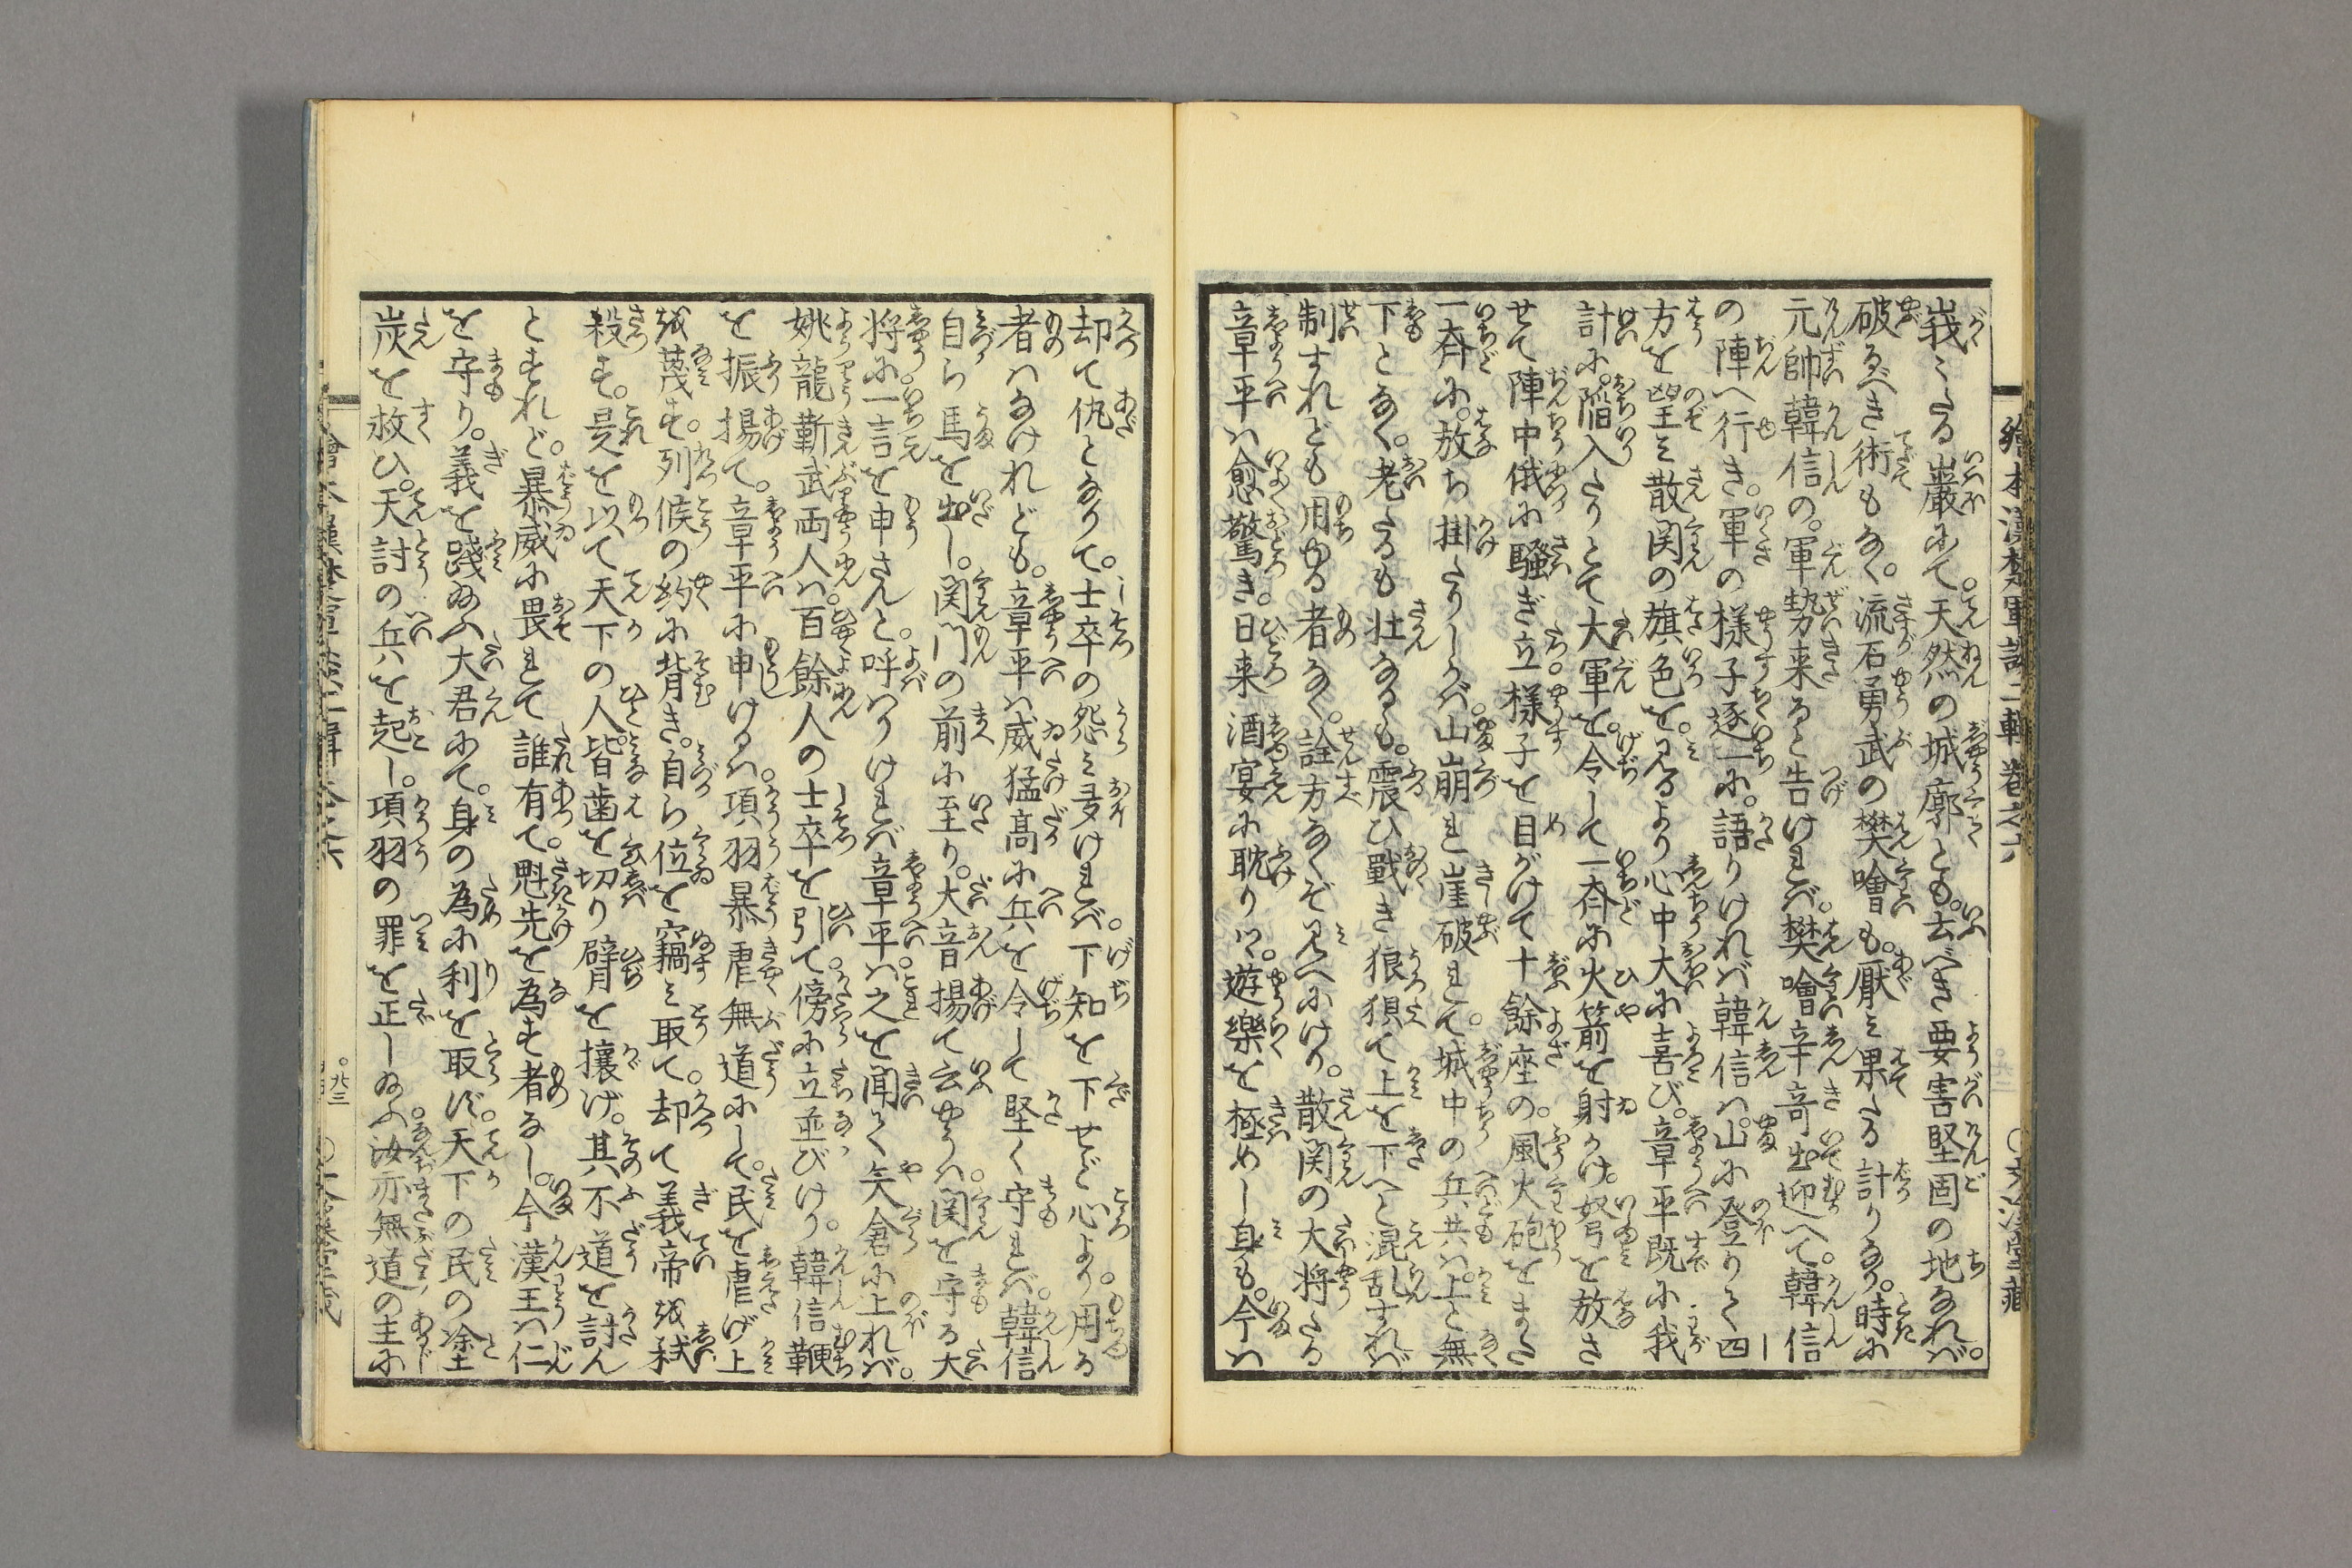 繪本漢楚軍談二輯巻之六
峩々たる巖にて。天然の城廓とも。去べき要害堅固の地なれバ。
破るべき術もなく。流石勇武の樊噲も。厭ミ果たる計りなり。時に
元帥韓信の。軍勢来ると告けれバ。樊噲辛竒出迎へて。韓信
の陣へ行き。軍の様子逐一に。語りけれバ韓信ハ。山に登りて四
方を望ミ散関の旗色を。見るより心中大に喜び。章平既に我
計に。陥入たりとて大軍を。令して一斉に火箭を射かけ。弩を放さ
せて陣中俄に騒ぎ立。様子を目がけて十餘座の。風火砲をまた
一斉に。放ち掛たりしかバ。山崩れ崖破れて。城中の兵共ハ。上と無
下となく。老たるも壮なるも。震ひ戰き狼狽て上を下へと混乱すれバ
制すれども用ゆる者なく。詮方なくぞ見へにけり。散関の大将たる
章平ハ愈驚き。日来酒宴に耽りツヽ。遊樂を極めし身も。今ハ
却て仇となりて。士卒の怨ミ受けれバ。下知を下せど心より。用る
者ハなけれども。章平ハ威猛高に兵を令して堅く守れバ。韓信
自ら馬を出し。関門の前に至り。大音揚て云やうハ。関を守る大
将に。一言を申さんと。呼ハりけれバ章平ハ。之を聞て矢倉に上れバ。
姚龍靳武両人ハ。百餘人の士卒を引て。傍に立並びけり。韓信鞭
を振揚て。章平に申けるハ。項羽暴虐無道にして。民を虐げ上
を蔑す。列候の約に背き。自ら位を竊ミ取て。却て義帝を弑
殺す。是を以て天下の人。皆歯を切り臂を攘げ。其不道を討ん
とすれど。暴威に畏れて誰有て。魁先を為す者なし。今漢王ハ仁
を守り。義を踐給ふ大君にて。身の為に利を取ず。天下の民の塗
炭を救ひ。天討の兵を起し。項羽の罪を正し給ふ。汝亦無道の主に